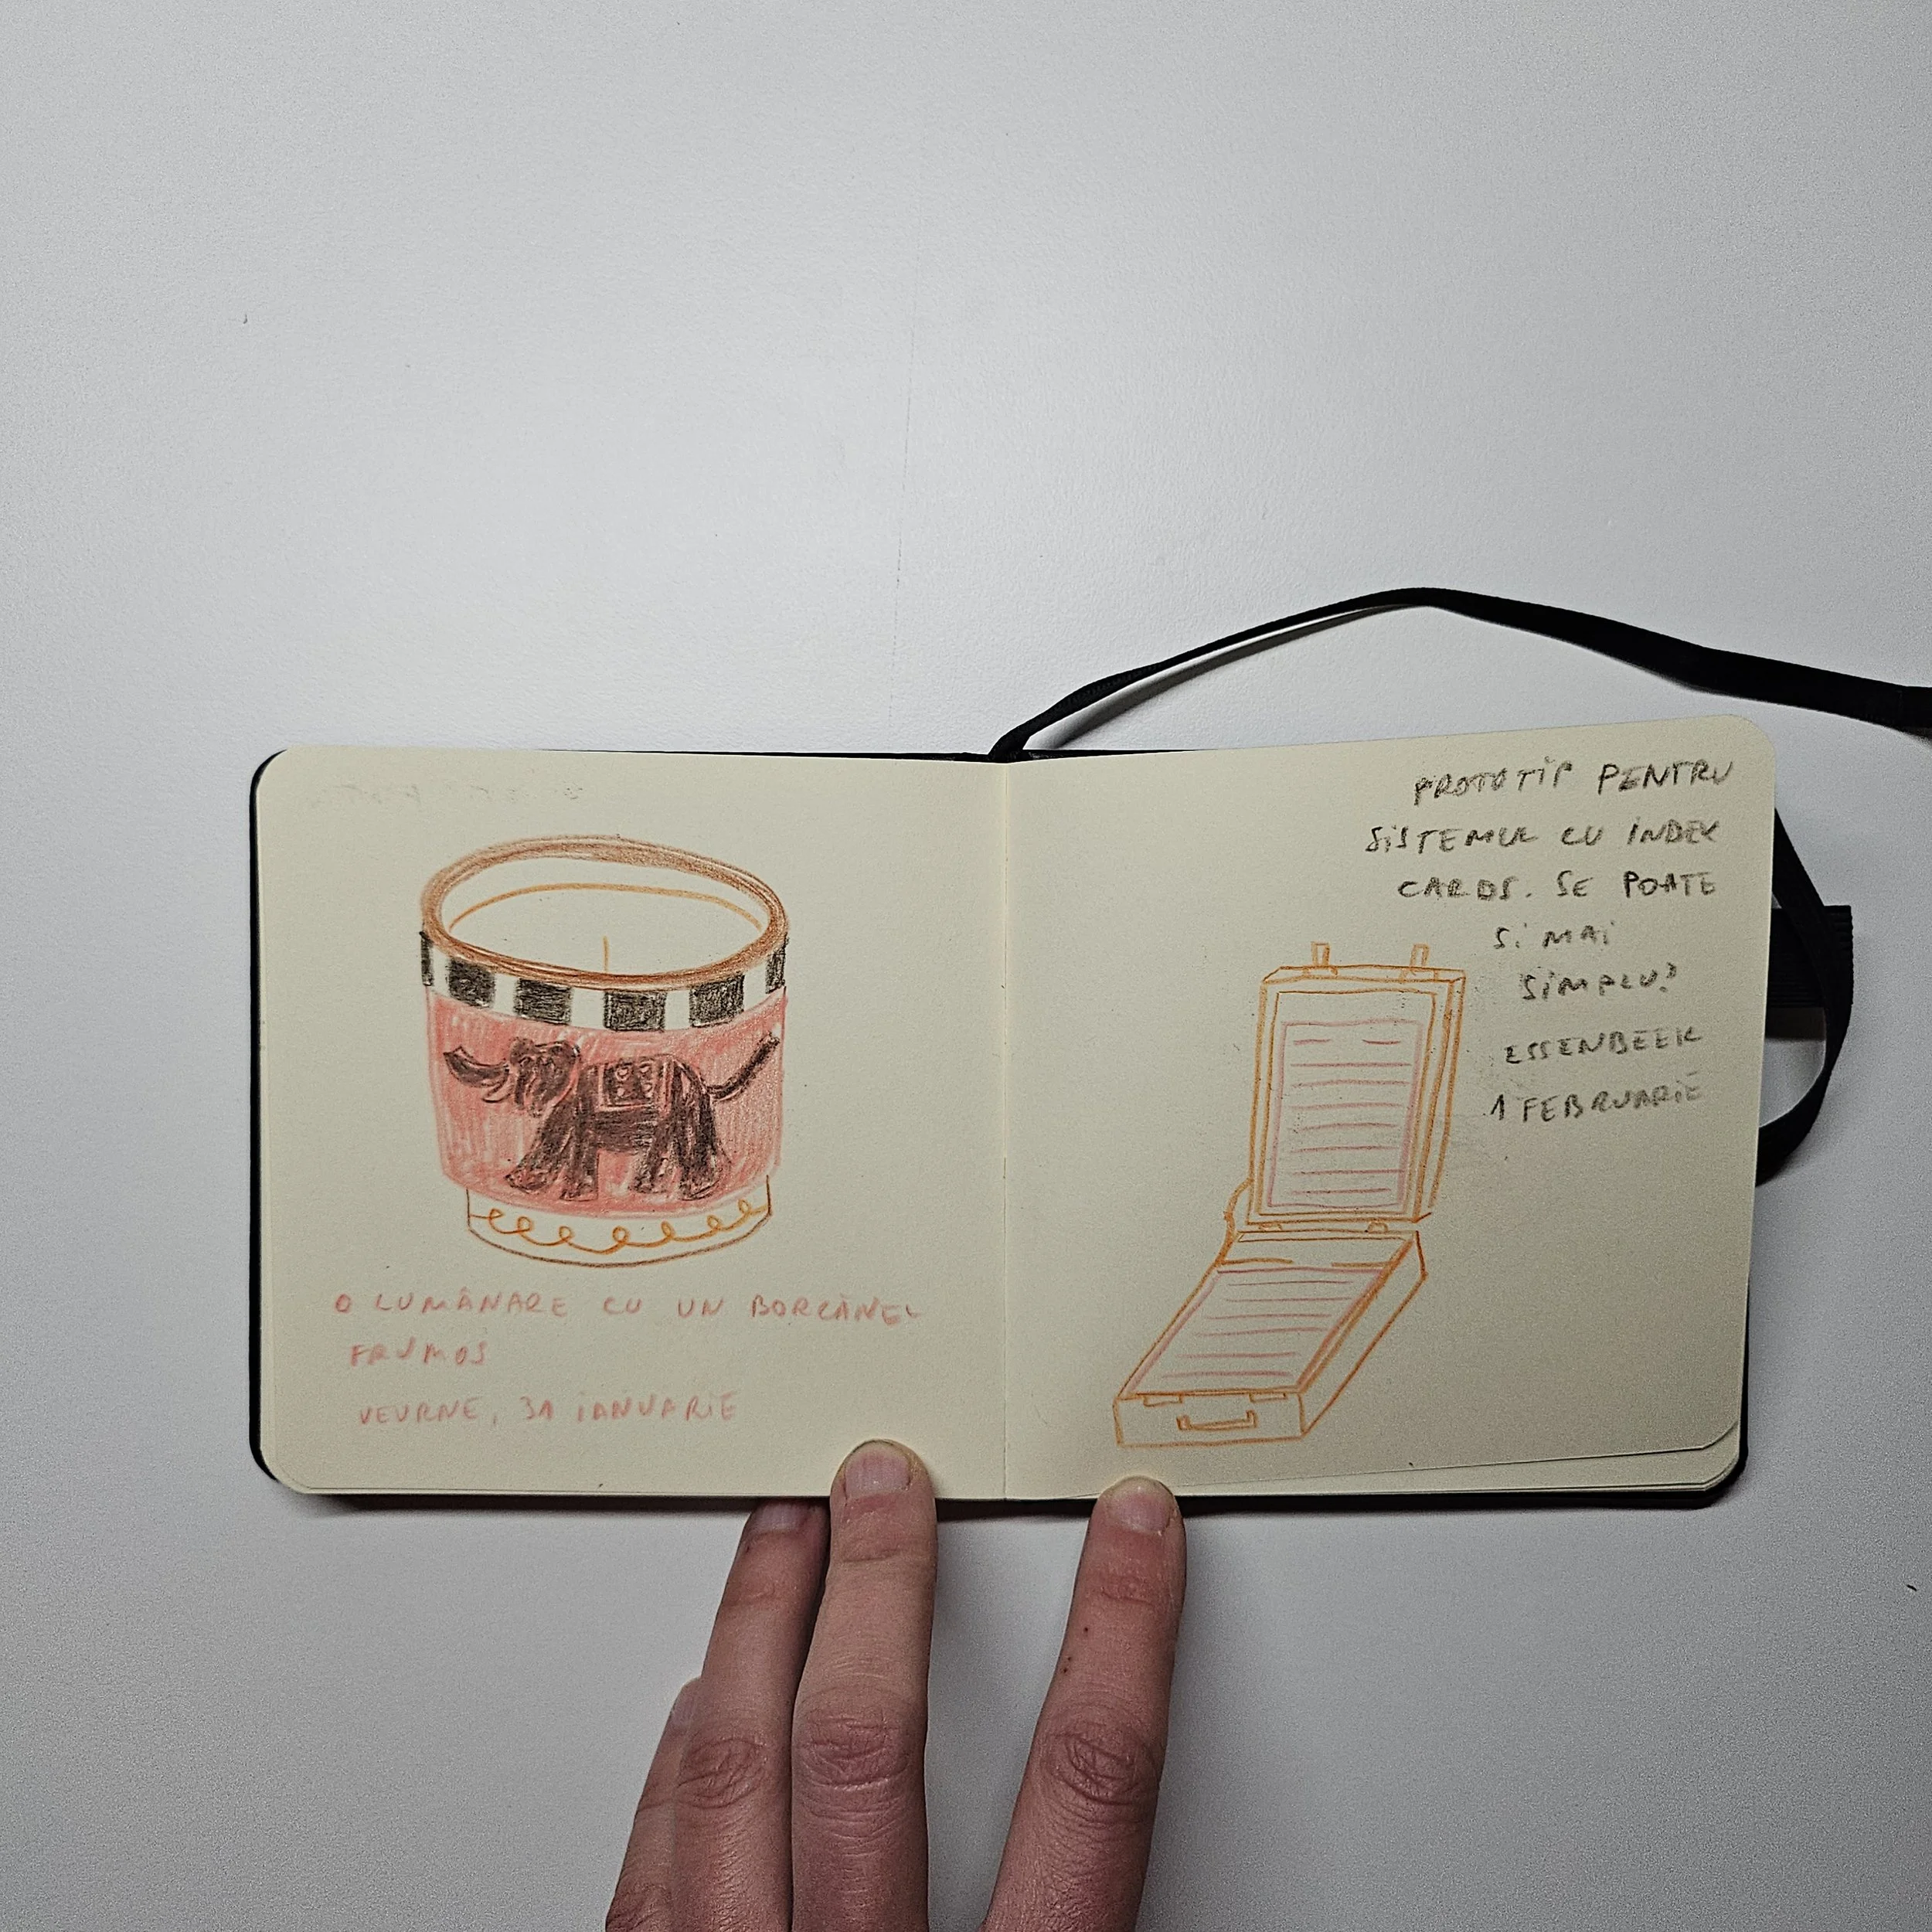 O LUMÂNARE CU UN BORCĂNEL
FRUMOS
VEURNE, 31 IANUARIE
PROTOTIP PENTRU
SISTEMUL CU INDEX
CARDS. SE POATE
SI MAI
SIMPLU?
ESSENBEEK
1 FEBRUARIE